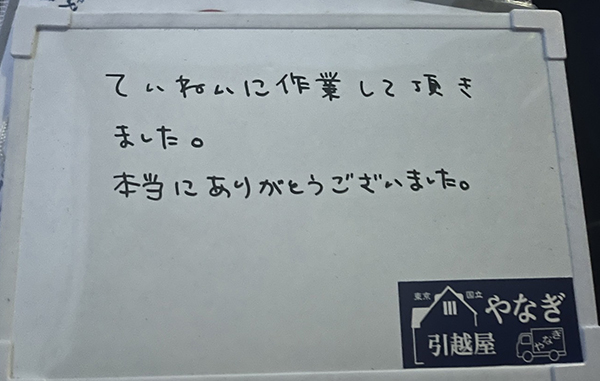 ていねいに作業して頂き
ました。
本当にありがとうございました。
東京 国立 やなぎ
引越屋 やなぎ